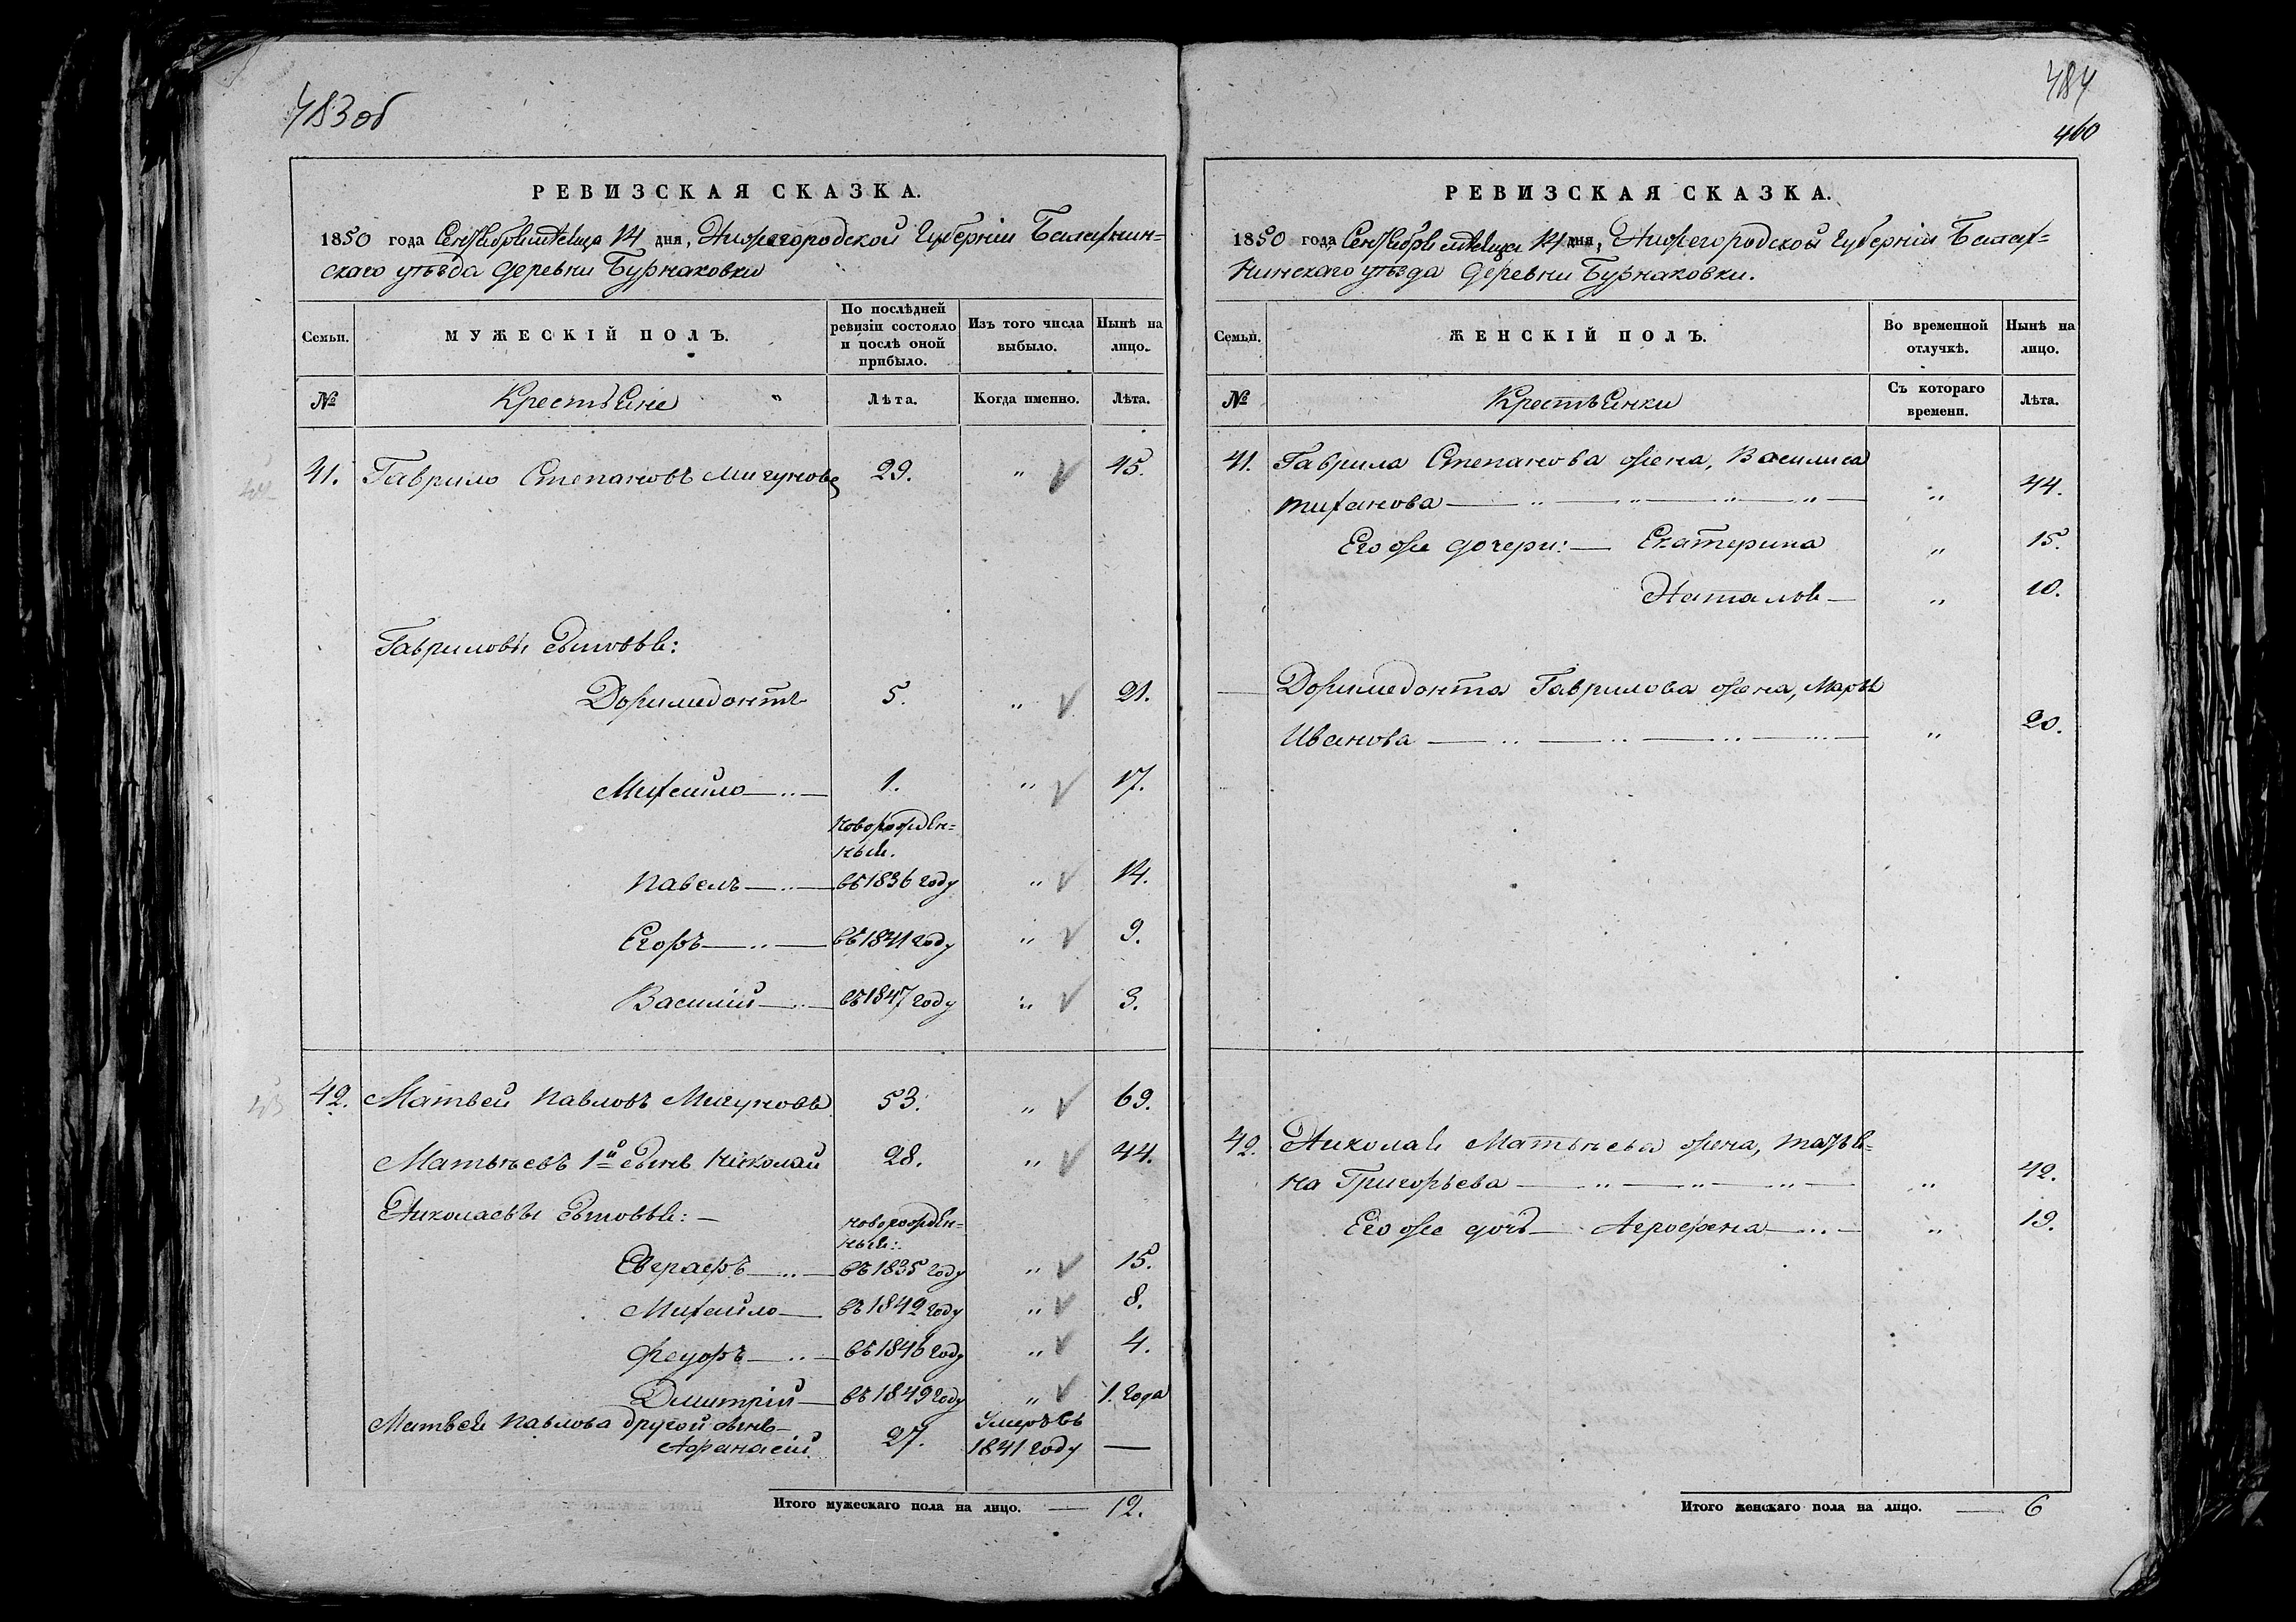 483об
РЕВИЗСКАЯ СКАЗКА.
1850 года Сентября месяца 14 дня, Нижегородской Губерніи Балахнин-
скаго уѣзда деревни Бурнаковки
Семьи.
МУЖЕСКІЙ ПОЛЪ.
По послѣдней ревизіи состояло и послѣ оной прибыло.
Изъ того числа выбыло.
Нынѣ на лицо.
№ Крестьяне " Лѣта. Когда именно. Лѣта.
41. Гаврило Степановъ Мигуновъ 29. " 45.
Гавриловы сыновья:
Доримедонтъ 5. " 21.
Михайло 1. " 17.
Новорожден-
ные.
Павелъ въ 1836 году " 14.
Егоръ въ 1841 году " 9.
Василій въ 1847 году " 3.
42. Матвей Павловъ Мигуновъ 53. " 69.
Матвѣевъ 1й сынъ Николай 28. " 44.
Николаевы сыновья:
новорожден-
ные:
Евграфъ въ 1835 году " 15.
Михайло въ 1842 году " 8.
Федоръ въ 1846 году " 4.
Дмитрій въ 1849 году " 1. года
Матвея Павлова другой сынъ
Афанасій. 27. Умеръ въ 1841 году —
Итого мужескаго пола на лицо. — 12.
484
460
РЕВИЗСКАЯ СКАЗКА.
1850 года Сентября месяца 14 дня, Нижегородской Губерніи Балах-
нинскаго уѣзда деревни Бурнаковки.
Семьи.
ЖЕНСКІЙ ПОЛЪ.
Во временной отлучкѣ.
Нынѣ на лицо.
№ Крестьянки Съ котораго времени. Лѣта.
41. Гаврила Степанова жена, Василиса
Тиханова " 44.
Его же дочери: — Екатерина " 15.
Наталья — " 10.
Доримедонта Гаврилова жена, Марья
Иванова " 20.
42. Николая Матвѣева жена, Татья-
на Григорьева " 42.
Его же дочь — Агрофена " 19.
Итого женскаго пола на лицо. — 6